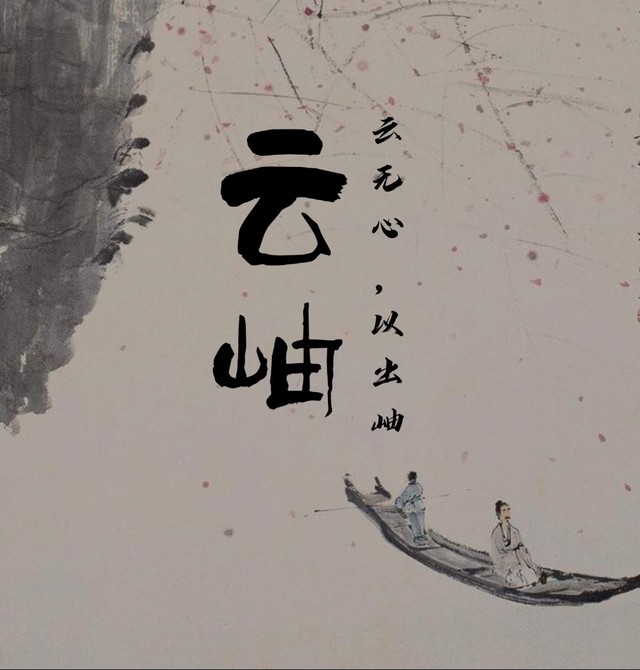 云岫
云无心，以出岫